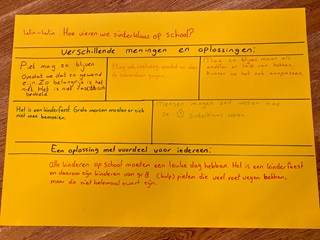 Win-Win: Hoe vieren we sinterklaas op school?
Verschillende meningen en oplossingen:
Piet mag zo blijven
Omdat we dat zo gewend
zijn. Zo belangrijk is het
niet. Het is niet racistisch
bedoeld.
Mag ook roetveeg, omdat ze door
de schoorsteen gaan.
Mag zo blijven, maar als
anderen er last van hebben,
kunnen we het ook aanpassen.
Het is een kinderfeest. Grote mensen moeten er zich
niet mee bemoeien.
Mensen mogen zelf weten hoe
ze Sinterklaas vieren
Een oplossing met voordeel voor iedereen:
Alle kinderen op school moeten een leuke dag hebben. Het is een kinderfeest
en daarom zijn kinderen van gr 8 (hulp) pieten die veel roet vegen hebben,
maar die niet helemaal zwart zijn.